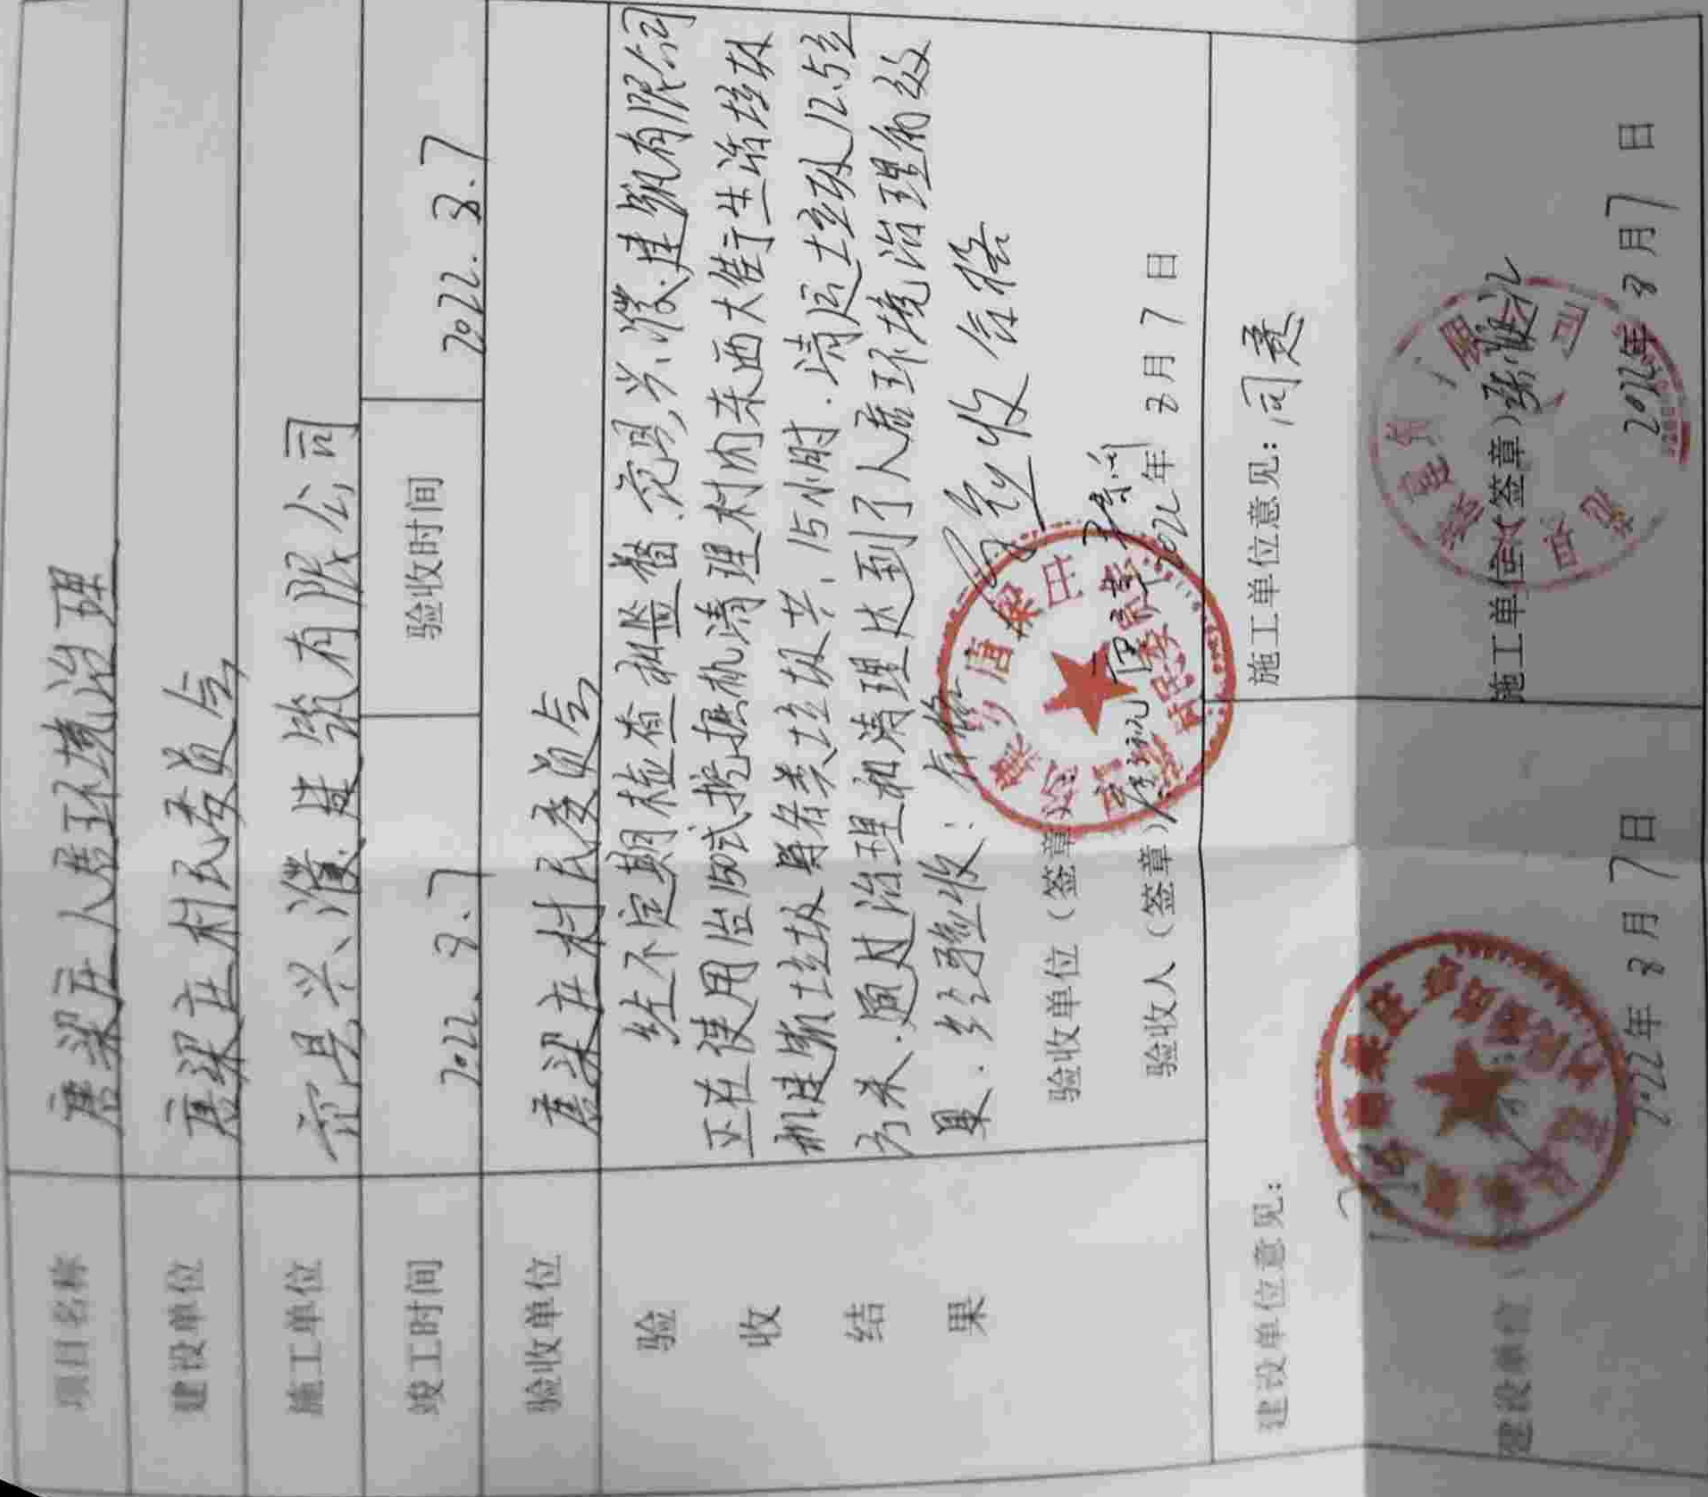 项目名称 唐梁庄人居环境治理
建设单位 唐梁庄村民委员会
施工单位 范县兴濮建筑有限公司
竣工时间 2022.8.7 验收时间 2022.8.7
验收单位 唐梁庄村民委员会
验收结果
经不定期检查和监督.范县兴濮建筑有限公司
正在使用治150式挖掘机清理村内东西大街生活垃圾
和建筑垃圾等各类垃圾共15小时.清运垃圾12.5立
方米.通过治理和清理达到了人居环境治理的效
果.经验收:合格 验收合格
验收单位(签章)
验收人(签章)
2022年8月7日
建设单位意见:
建设单位
2022年8月7日
施工单位意见:同意
施工单位(签章)
2022年8月7日